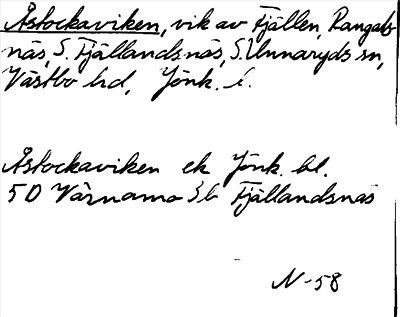 Åstockaviken, vik av Fjällen, Rangels-
näs, S. Fjällandsnäs, S. Unnaryds sn,
Västbo hd, Jönk. l.
Åstockaviken ek Jönk. bl.
5D Värnamo 3b Fjällandsnäs
N-58